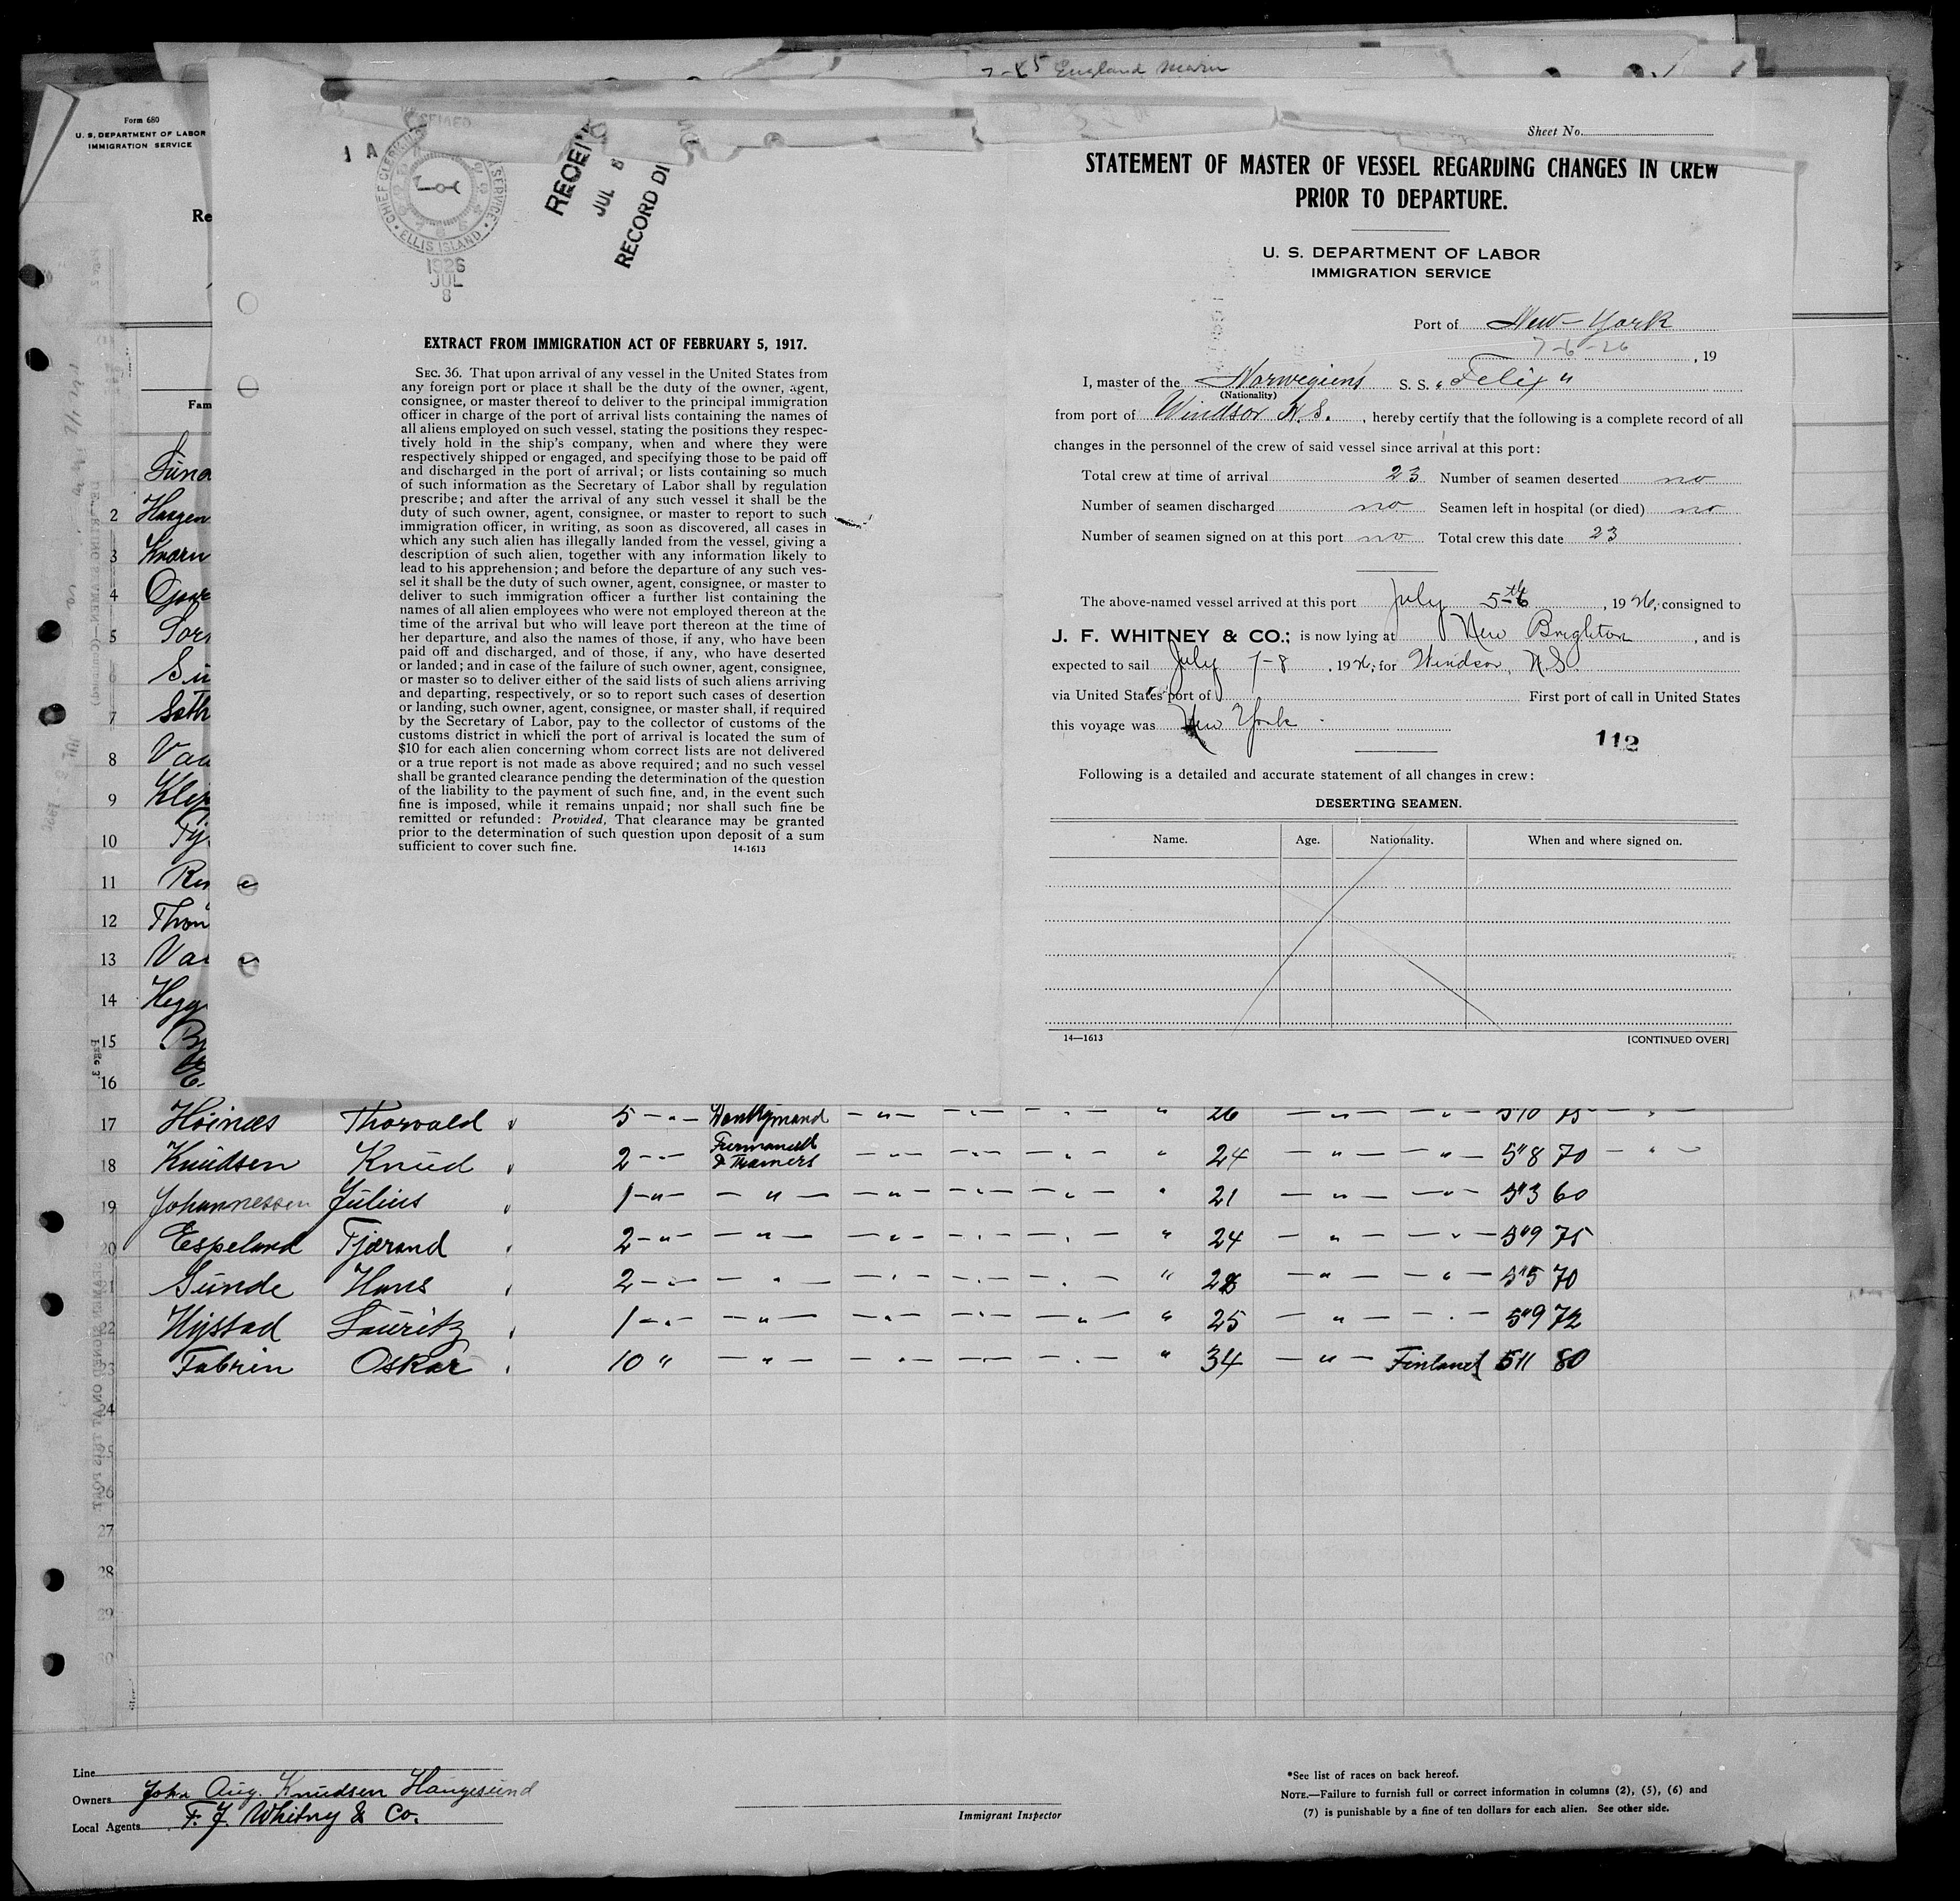 7-25 England Marn
Form 680
U. S. DEPARTMENT OF LABOR
IMMIGRATION SERVICE
CHIEF CLERK
SERVICE
ELLIS ISLAND
1926
JUL
8
JUL 8
RECORD DI
EXTRACT FROM IMMIGRATION ACT OF FEBRUARY 5, 1917.
SEC. 36. That upon arrival of any vessel in the United States from
any foreign port or place it shall be the duty of the owner, agent,
consignee, or master thereof to deliver to the principal immigration
officer in charge of the port of arrival lists containing the names of
all aliens employed on such vessel, stating the positions they respec-
tively hold in the ship's company, when and where they were
respectively shipped or engaged, and specifying those to be paid off
and discharged in the port of arrival; or lists containing so much
of such information as the Secretary of Labor shall by regulation
prescribe; and after the arrival of any such vessel it shall be the
duty of such owner, agent, consignee, or master to report to such
immigration officer, in writing, as soon as discovered, all cases in
which any such alien has illegally landed from the vessel, giving a
description of such alien, together with any information likely to
lead to his apprehension; and before the departure of any such ves-
sel it shall be the duty of such owner, agent, consignee, or master to
deliver to such immigration officer a further list containing the
names of all alien employees who were not employed thereon at the
time of the arrival but who will leave port thereon at the time of
her departure, and also the names of those, if any, who have been
paid off and discharged, and of those, if any, who have deserted
or landed; and in case of the failure of such owner, agent, consignee,
or master so to deliver either of the said lists of such aliens arriving
and departing, respectively, or so to report such cases of desertion
or landing, such owner, agent, consignee, or master shall, if required
by the Secretary of Labor, pay to the collector of customs of the
customs district in which the port of arrival is located the sum of
$10 for each alien concerning whom correct lists are not delivered
or a true report is not made as above required; and no such vessel
shall be granted clearance pending the determination of the question
of the liability to the payment of such fine, and, in the event such
fine is imposed, while it remains unpaid; nor shall such fine be
remitted or refunded: Provided, That clearance may be granted
prior to the determination of such question upon deposit of a sum
sufficient to cover such fine. 14-1613
Sheet No.
STATEMENT OF MASTER OF VESSEL REGARDING CHANGES IN CREW
PRIOR TO DEPARTURE.
U. S. DEPARTMENT OF LABOR
IMMIGRATION SERVICE
Port of New-York
7-6-26, 19
I, master of the Norwegiens S. S. "Felix"
(Nationality)
from port of Windsor N.S., hereby certify that the following is a complete record of all
changes in the personnel of the crew of said vessel since arrival at this port:
Total crew at time of arrival 23 Number of seamen deserted no
Number of seamen discharged no Seamen left in hospital (or died) no
Number of seamen signed on at this port no Total crew this date 23
The above-named vessel arrived at this port July 5th, 1926, consigned to
J. F. WHITNEY & CO.; is now lying at New Brighton, and is
expected to sail July 7-8, 1926, for Windsor, N.S.
via United States port of First port of call in United States
this voyage was New York
112
Following is a detailed and accurate statement of all changes in crew:
DESERTING SEAMEN.
Name. Age. Nationality. When and where signed on.
14—1613 [CONTINUED OVER]
2
3
4
5
6
7
8
9
10
11
12
13
14
15
16
17 Hoinæs Thorvald " 5 - " - Donkeymand - " - " 26 - " - 5"10 75
18 Knudsen Knud " 2 - " - Firemand & Trimers - " - " 24 - " - 5"8 70
19 Johannessen Julius " 1 - " - " - " 21 - " - 5"3 60
20 Espeland Tjærand " 2 - " - " - " 24 - " - 5"9 75
21 Sunde Hans " 2 - " - " - " 28 - " - 5"5 70
22 Hystad Lauritz " 1 - " - " - " 25 - " - 5"9 72
23 Fabrin Oskar " 10 " - " - " 34 - " - Finland 5"11 80
24
25
26
27
28
29
30
Line
Owners John Aug. Knudsen Haugesund
Local Agents F. J. Whitny & Co.
Immigrant Inspector
*See list of races on back hereof.
NOTE.—Failure to furnish full or correct information in columns (2), (5), (6) and
(7) is punishable by a fine of ten dollars for each alien. See other side.